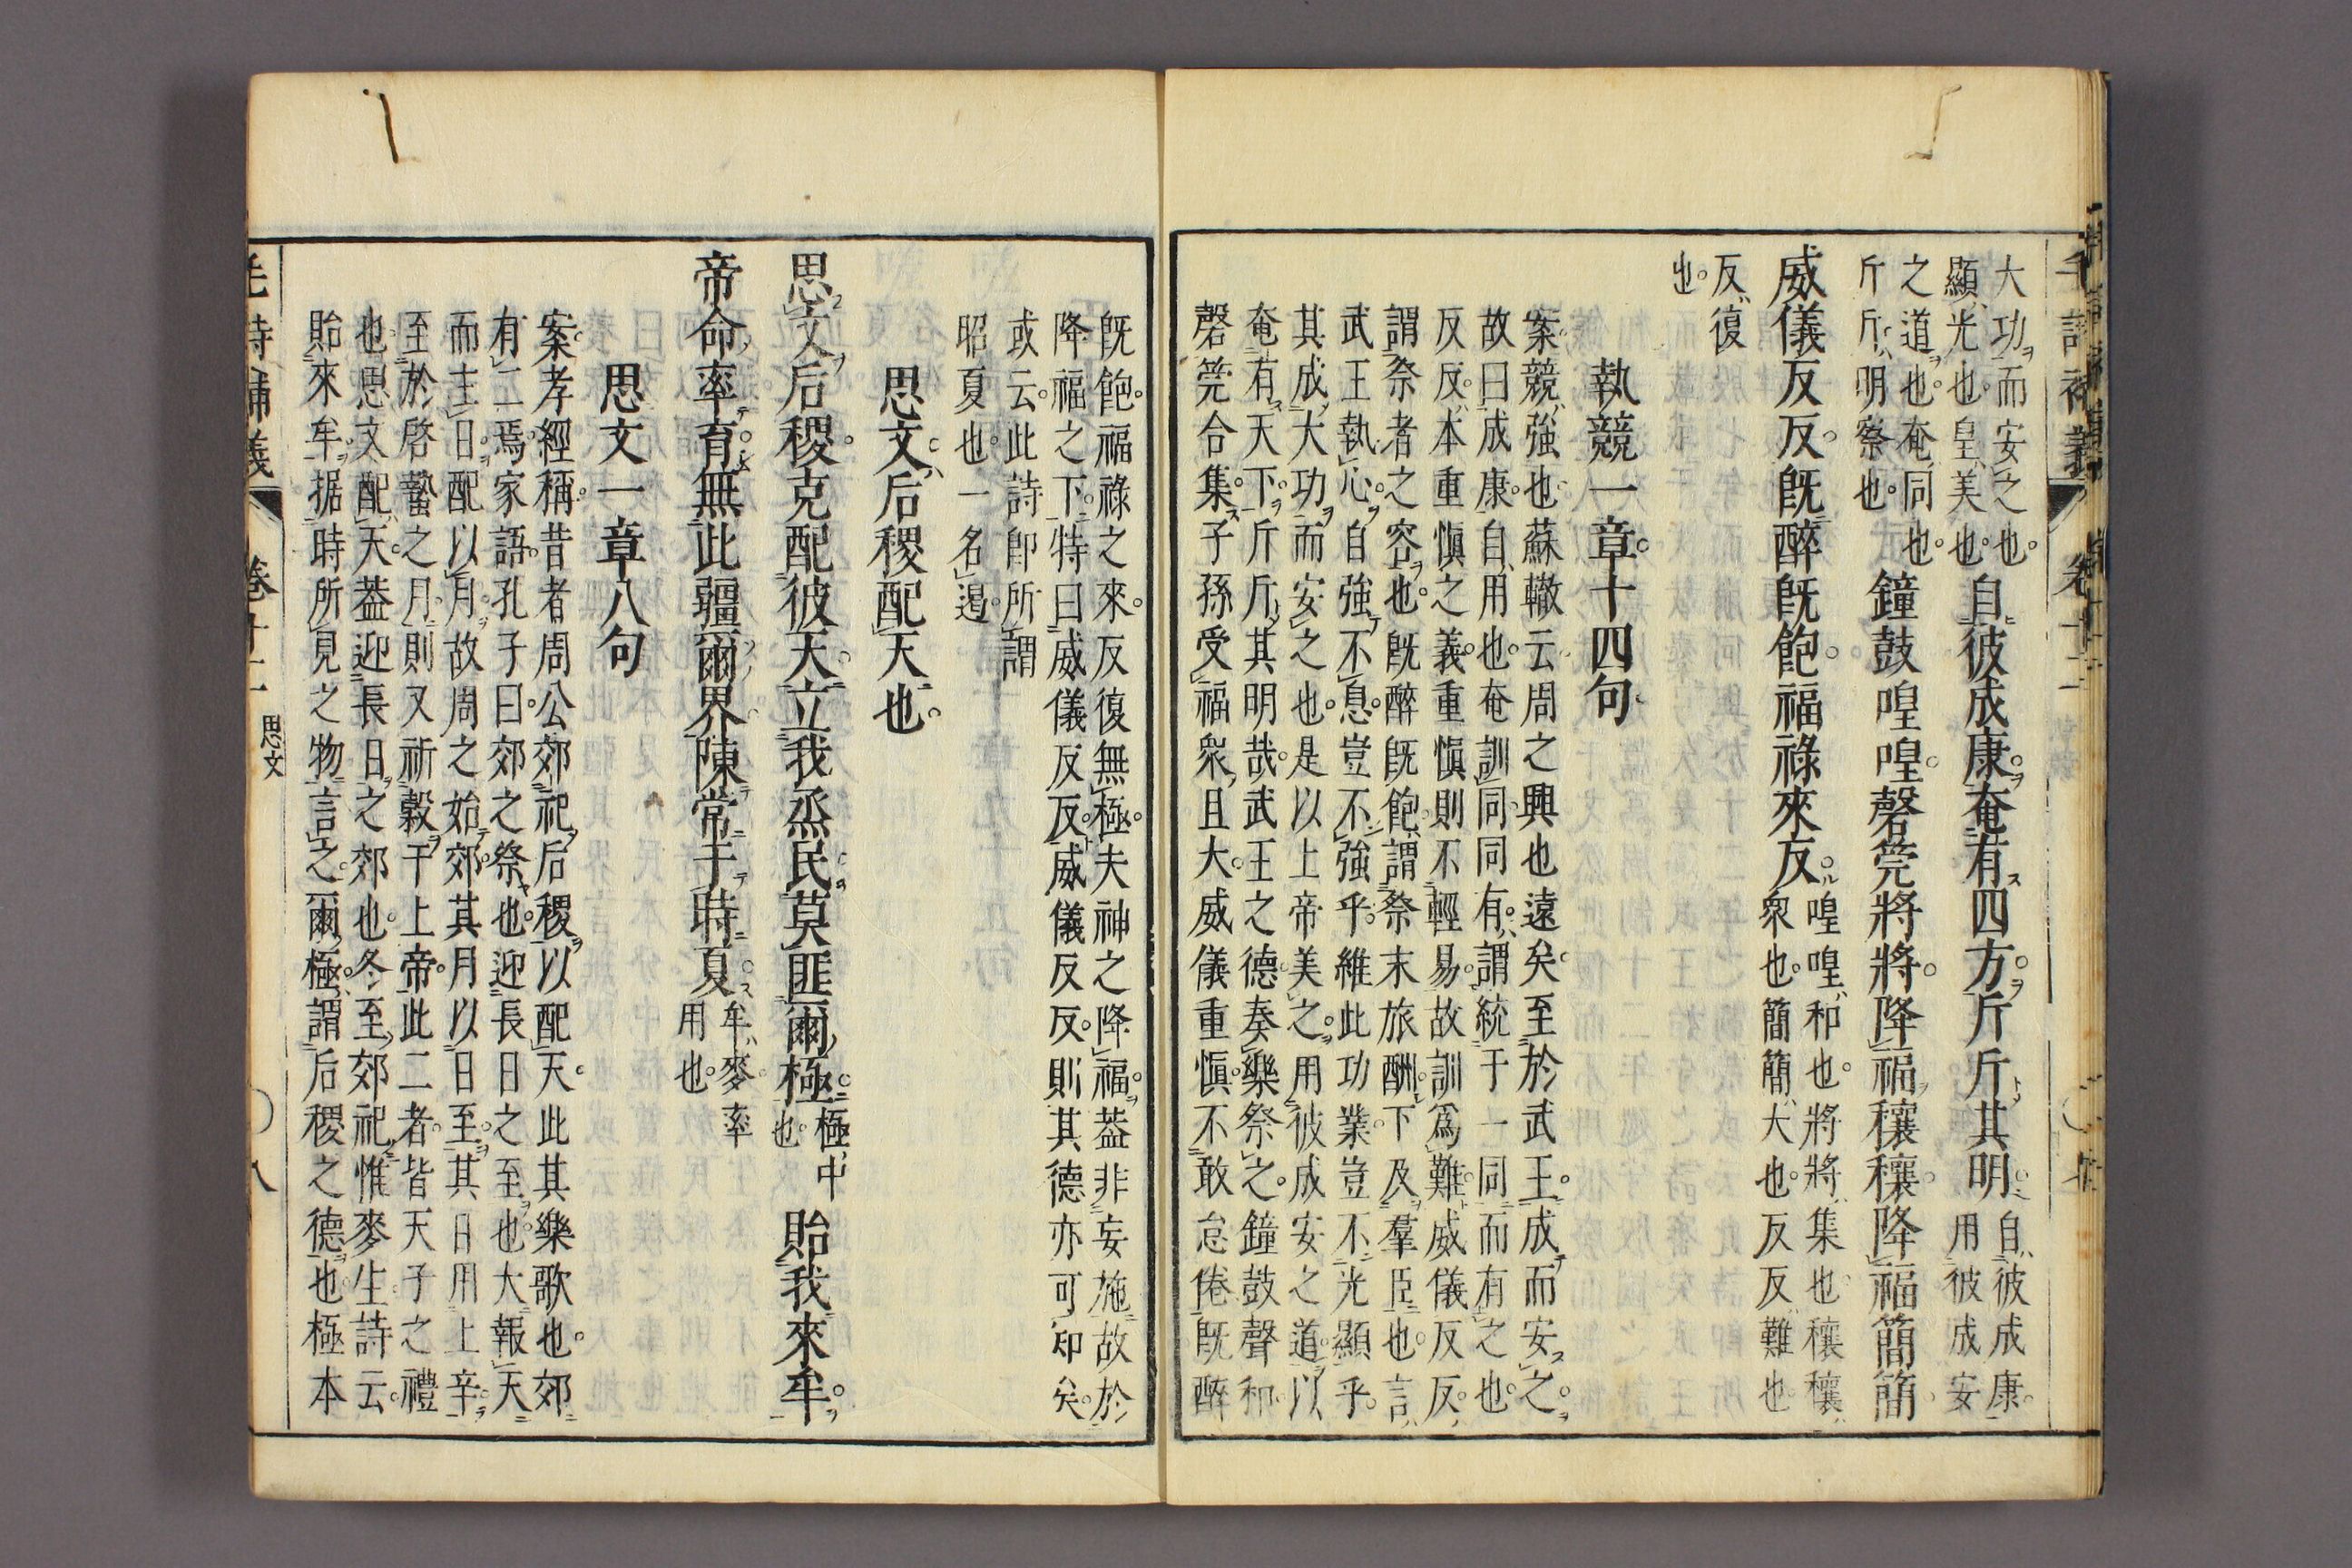 毛詩補義 卷十二
大功而安之也
顯光也皇美也
自彼成康奄有四方斤斤其明
自彼成康
用彼成安
之道也奄同也
斤斤明察也
鐘鼓喤喤磬筦將將降福穰穰降福簡簡
威儀反反既醉既飽福祿來反
喤喤和也將將集也穰穰
衆也簡簡大也反反難也
反復
也
執競一章十四句
案競強也蘇轍云周之興也遠矣至於武王成而安之
故曰成康自用也奄訓同同有謂統于一同而有之也
反反本重愼之義重愼則不輕易故訓爲難威儀反反
謂祭者之容也既醉既飽謂祭末旅酬下及羣臣也言
武王執心自強不息豈不強乎維此功業豈不光顯乎
其成大功而安之也是以上帝美之用彼成安之道以
奄有天下斤斤其明哉武王之德奏樂祭之鐘鼓聲和
磬筦合集子孫受福衆且大威儀重愼不敢怠倦既醉
既飽福祿之來反復無極夫神之降福葢非妄施故於
降福之下特曰威儀反反威儀反反則其德亦可知矣
或云此詩卽所謂
昭夏也一名遏
思文后稷配天也
思文后稷克配彼天立我烝民莫匪爾極
極中
也
貽我來牟
帝命率育無此疆爾界陳常于時夏
牟麥率
用也
思文一章八句
案孝經稱昔者周公郊祀后稷以配天此其樂歌也郊
有二焉家語孔子曰郊之祭也迎長日之至也大報天
而主日配以月故周之始郊其月以日至其日用上辛
至於啓蟄之月則又祈穀于上帝此二者皆天子之禮
也思文配天葢迎長日之郊也冬至郊祀惟麥生詩云
貽來牟据時所見之物言之爾極謂后稷之德也極本
毛詩補義 卷十二 思文 八